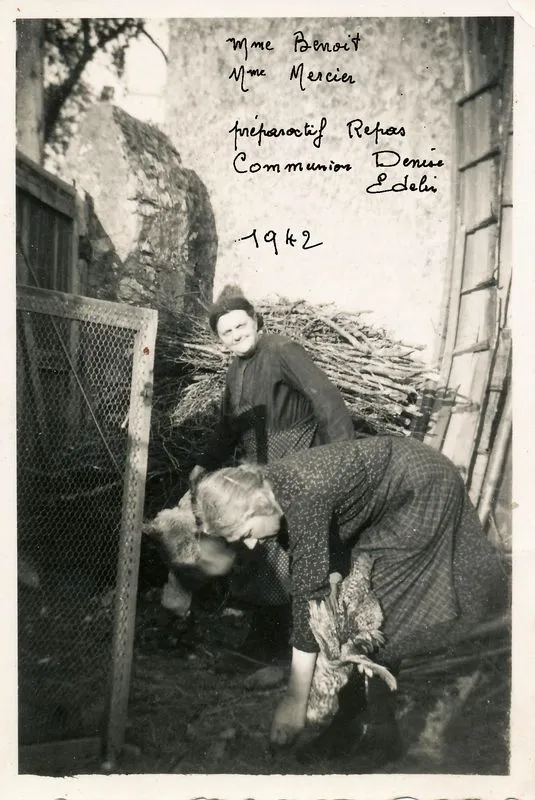 Mme Benoit
Mme Mercier
préparatif Repas
Communion Denise
Edelin
1942